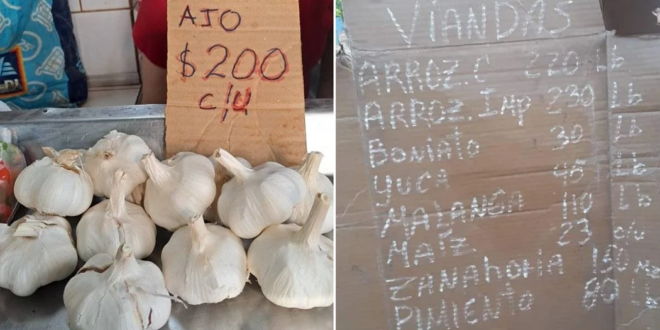 AJO
$200
c/u
VIANDAS
ARROZ.C 220 lb
ARROZ.Imp 230 lb
BONIATO 30 lb
YUCA 45 lb
MALANGA 110 lb
MAÍZ 23 c/u
ZANAHORIA 150 Mz
PIMIENTO 80 lb